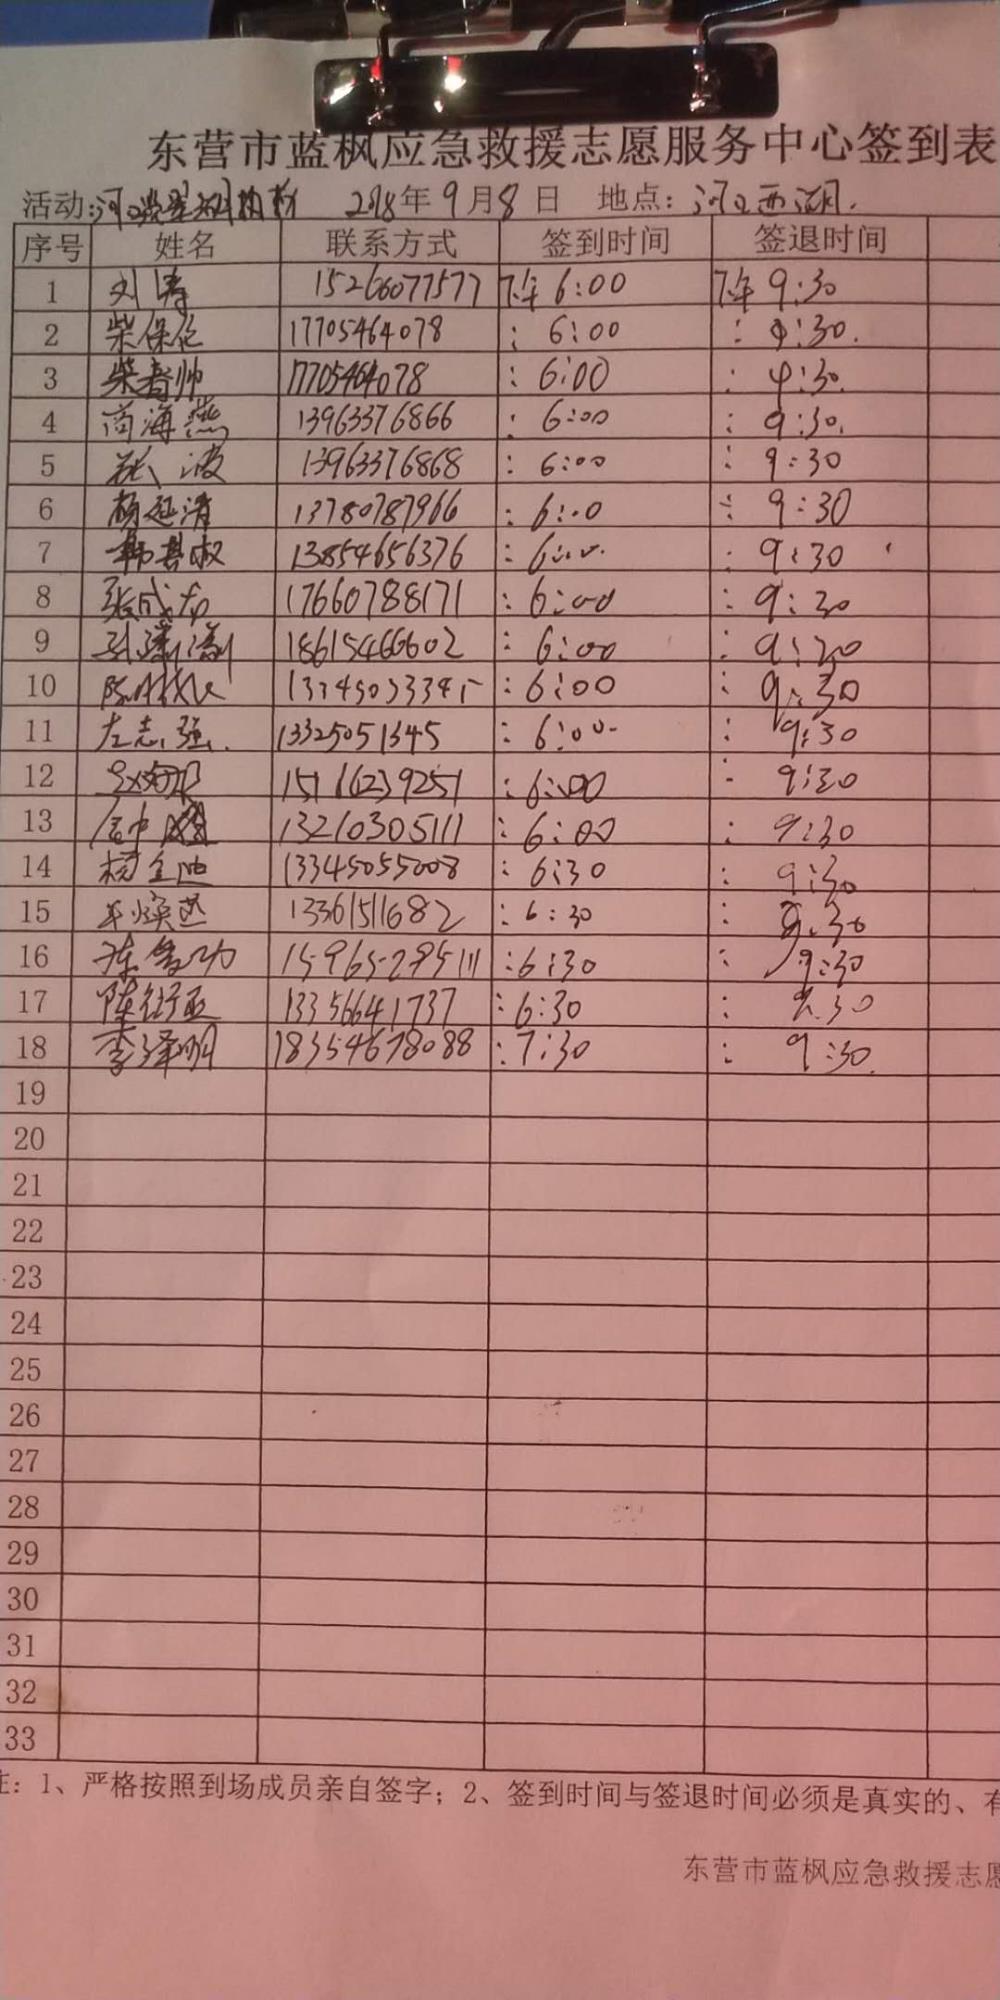 东营市蓝枫应急救援志愿服务中心签到表
活动: 2018年9月8日 地点:河口西湖.
序号 姓名 联系方式 签到时间 签退时间
1 刘涛 15266077577 下午 6:00 下午 9:30
2 柴保伦 17705464078 : 6:00 : 9:30.
3 柴春帅 17705464078 : 6:00 : 9:30.
4 商海燕 13963376866 : 6:00 : 9:30.
5 张波 13963376868 : 6:00 : 9:30
6 杨延清 13780787966 : 6:00 : 9:30
7 13854656376 : 6:00 : 9:30
8 张成 17660788171 : 6:00 : 9:30
9 18615466602 : 6:00 : 9:30
10 : 6:00 : 9:30
11 左志强. 13325051345 : 6:00 : 9:30
12 15116239251 : 6:00 9:30
13 13210305111 : 6:00 : 9:30
14 杨金迪 13345055008 : 6:30 : 9:30
15 13361511682 : 6:30 : 9:30
16 15965295111 : 6:30 : 9:30
17 13356641737 : 6:30 : 9:30
18 李泽明 18354678088 : 7:30 : 9:30.
19
20
21
22
23
24
25
26
27
28
29
30
31
32
33
注:1、严格按照到场成员亲自签字;2、签到时间与签退时间必须是真实的、有
东营市蓝枫应急救援志愿